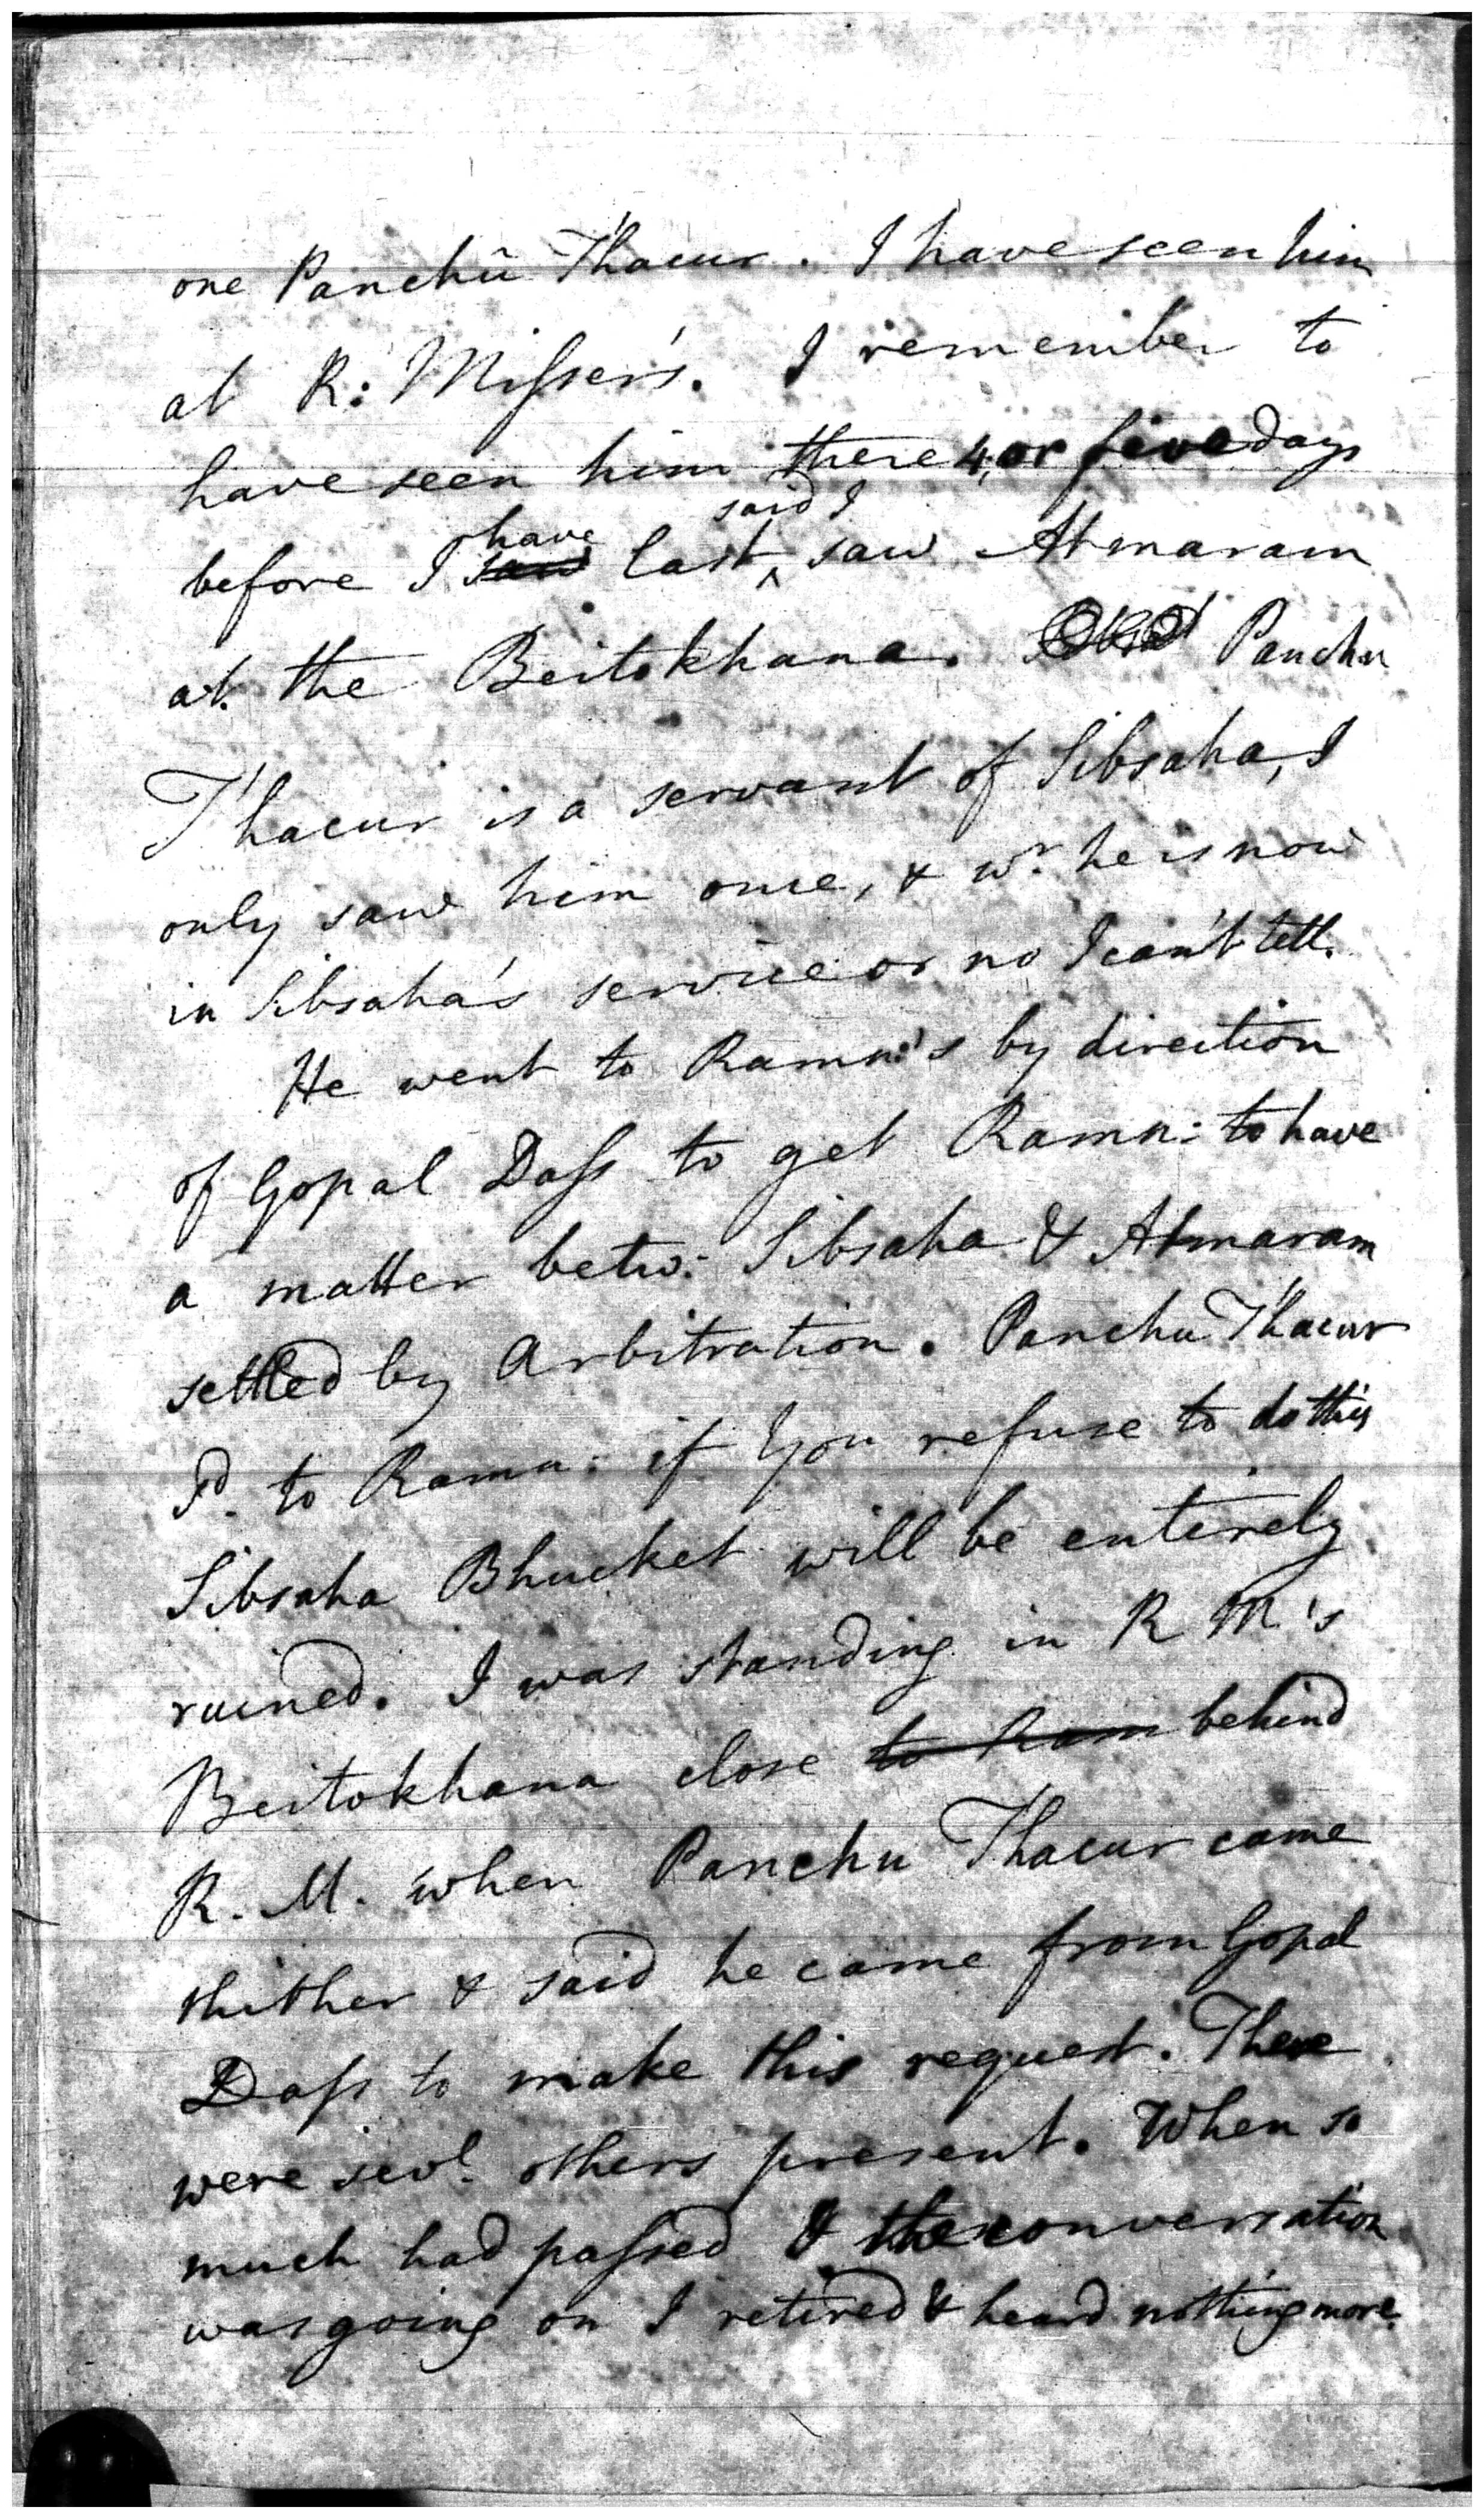 one Panchũ Thacur. I have seen him
at R: Misser's. I remember to
have seen him there 4, or five days
before I have last said I saw Atmaram
at the Beitokhana. Panchu
Thacur is a servant of Sibsaha, I
only saw him once, & wr. he is now
in Sibsaha's service or no I can't tell.
He went to Ramn:'s by direction
of Gopal Dass to get Ramn: to have
a matter betw: Sibsaha & Atmaram
settled by Arbitration. Panchu Thacur
Sd. to Ramn: if You refuse to do this
Sibsaha Bhucket will be entirely
ruined. I was standing in R M's
Beitokhana close to Ram behind
R. M. when Panchu Thacur came
thither & said he came from Gopal
Dass to make this request. There
were sevl. others present. When so
much had passed & the conversation
was going on I retired & heard nothing more.